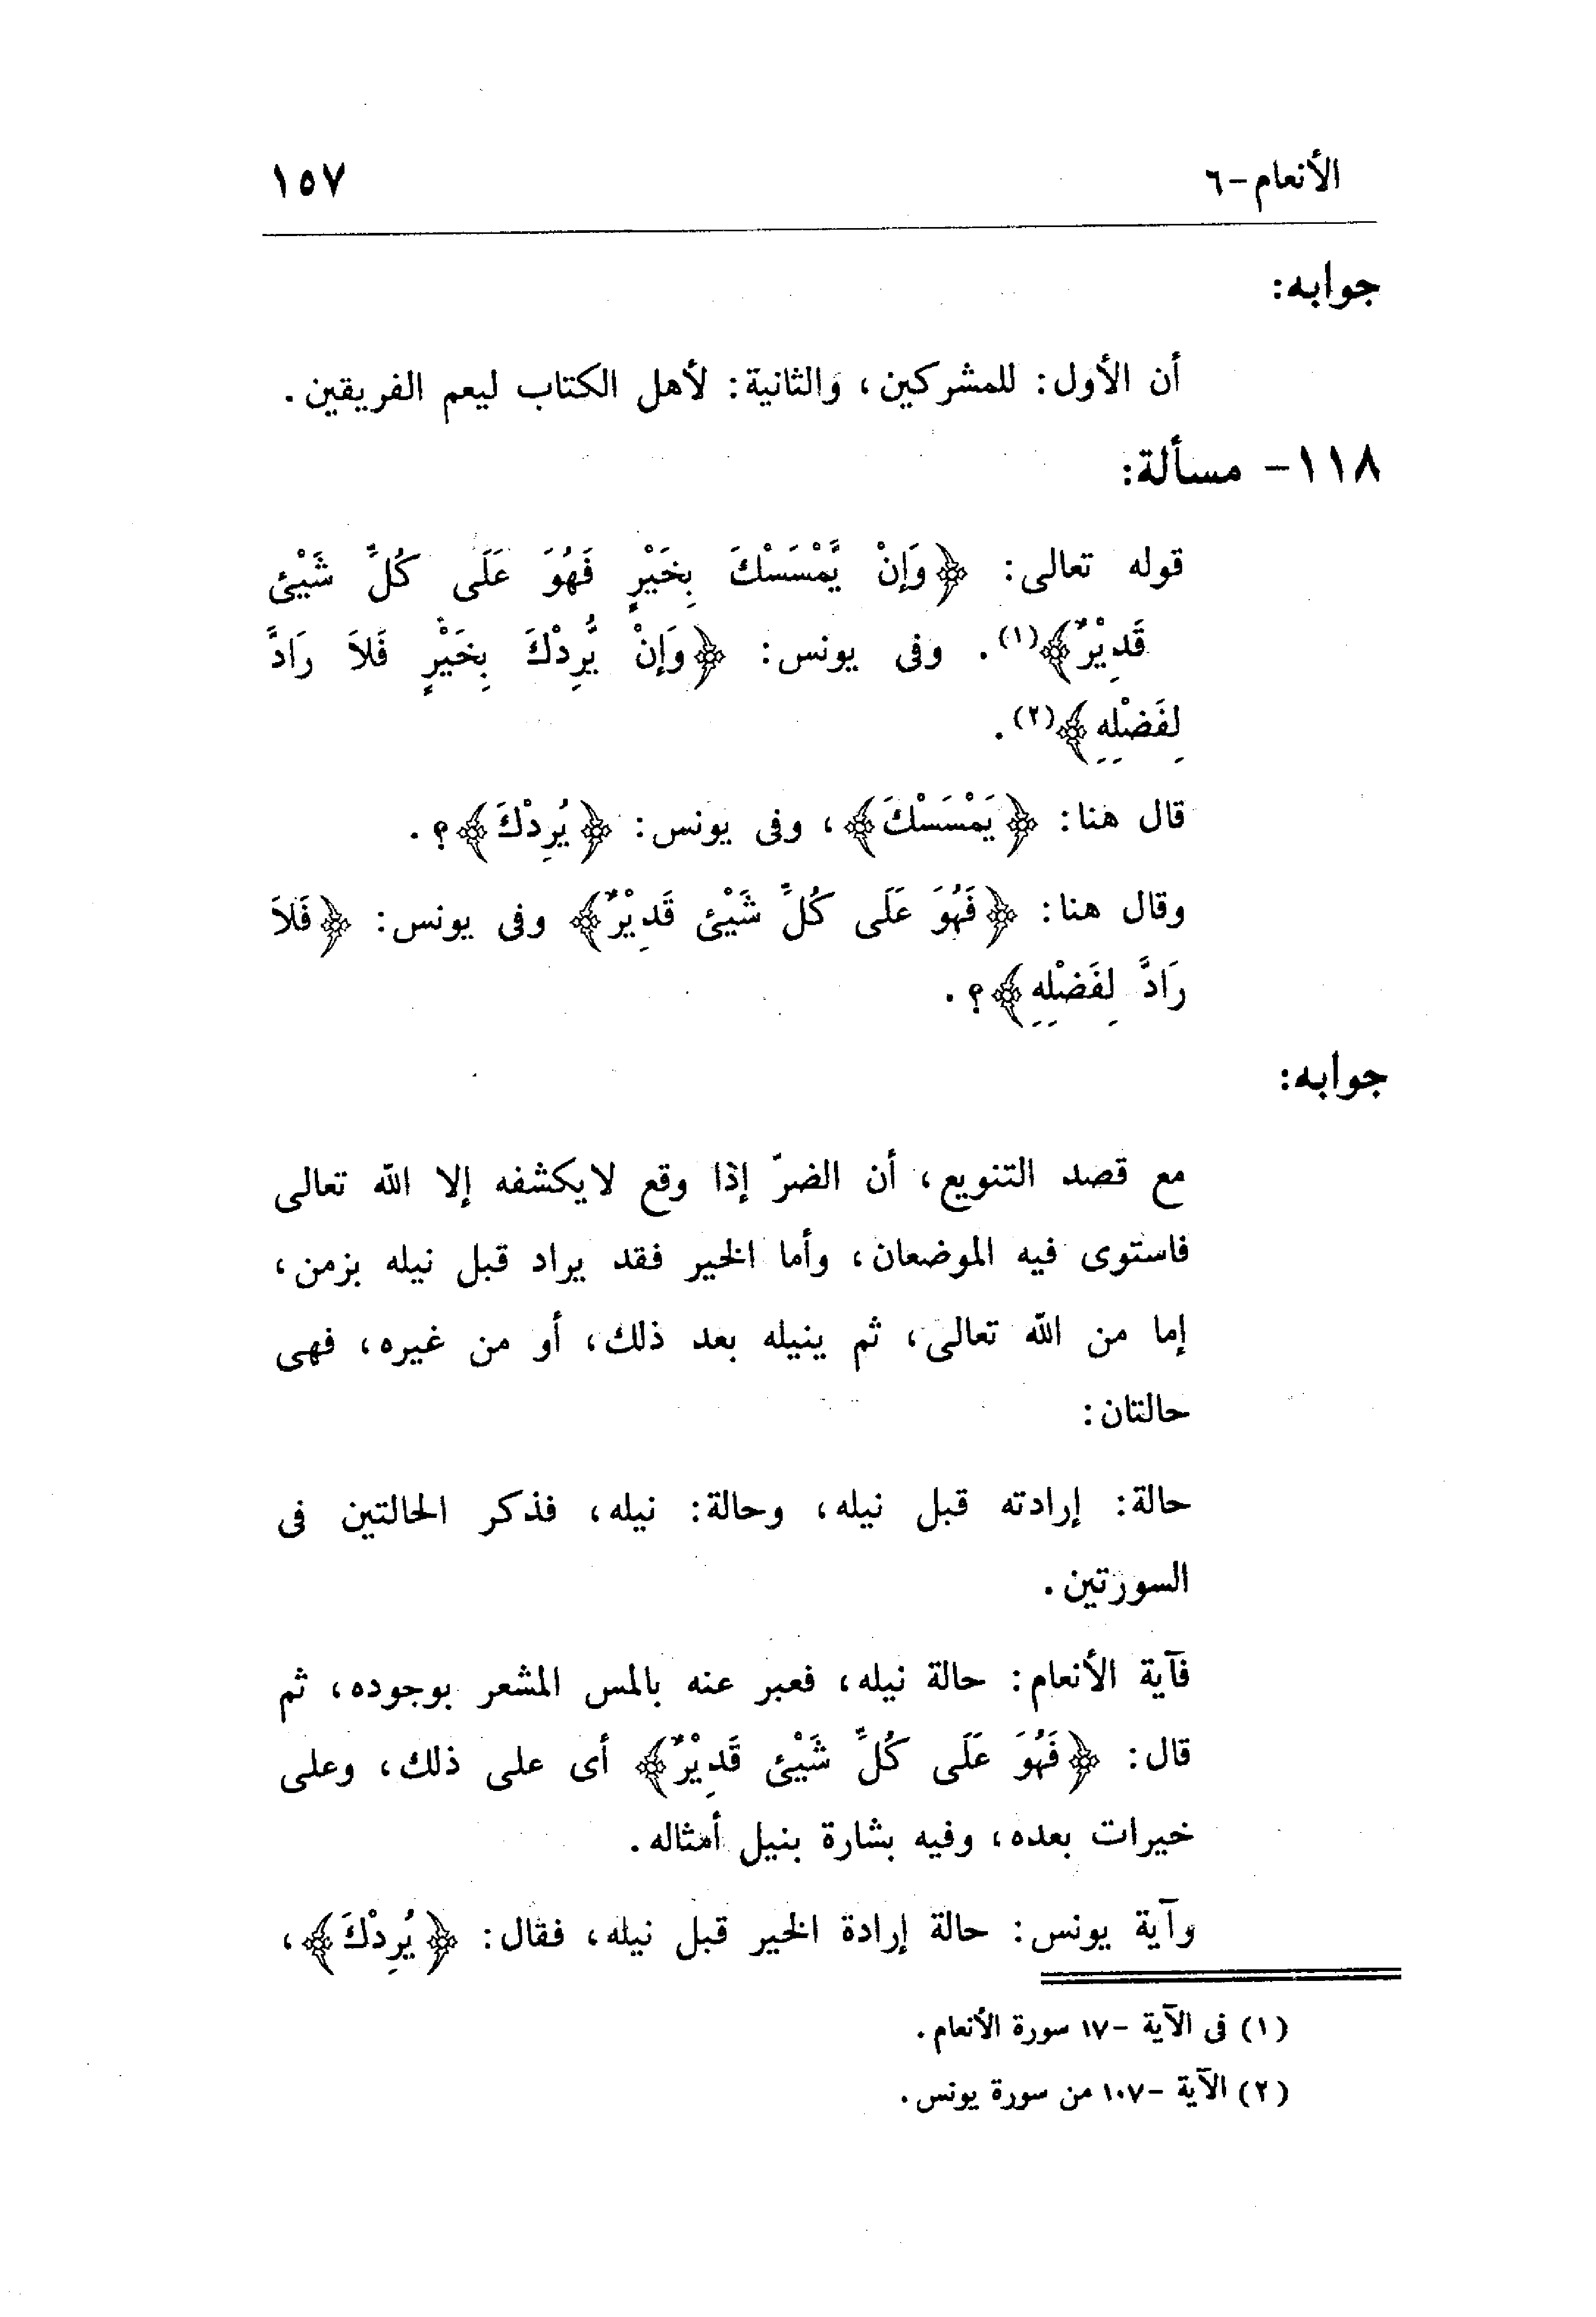 الأنعام-٦ ١٥٧
جوابه:
أن الأول: للمشركين، والثانية: لأهل الكتاب ليعم الفريقين.
١١٨- مسألة:
قوله تعالى: ﴿وَإِنْ يَّمْسَسْكَ بِخَيْرٍ فَهُوَ عَلَى كُلِّ شَيْئٍ
قَدِيْرٌ﴾(١). وفى يونس: ﴿وَإِنْ يُّرِدْكَ بِخَيْرٍ فَلاَ رَادَّ
لِفَضْلِهِ﴾(٢).
قال هنا: ﴿يَمْسَسْكَ﴾، وفى يونس: ﴿يُرِدْكَ﴾؟.
وقال هنا: ﴿فَهُوَ عَلَى كُلِّ شَيْئٍ قَدِيْرٌ﴾ وفى يونس: ﴿فَلاَ
رَادَّ لِفَضْلِهِ﴾؟.
جوابه:
مع قصد التنويع، أن الضرّ إذا وقع لايكشفه إلا الله تعالى
فاستوى فيه الموضعان، وأما الخير فقد يراد قبل نيله بزمن،
إما من الله تعالى، ثم ينيله بعد ذلك، أو من غيره، فهى
حالتان:
حالة: إرادته قبل نيله، وحالة: نيله، فذكر الحالتين فى
السورتين.
فآية الأنعام: حالة نيله، فعبر عنه بالمس المشعر بوجوده، ثم
قال: ﴿فَهُوَ عَلَى كُلِّ شَيْئٍ قَدِيْرٌ﴾ أى على ذلك، وعلى
خيرات بعده، وفيه بشارة بنيل أمثاله.
وآية يونس: حالة إرادة الخير قبل نيله، فقال: ﴿يُرِدْكَ﴾،
(١) فى الآية -١٧ سورة الأنعام.
(٢) الآية -١٠٧ من سورة يونس.